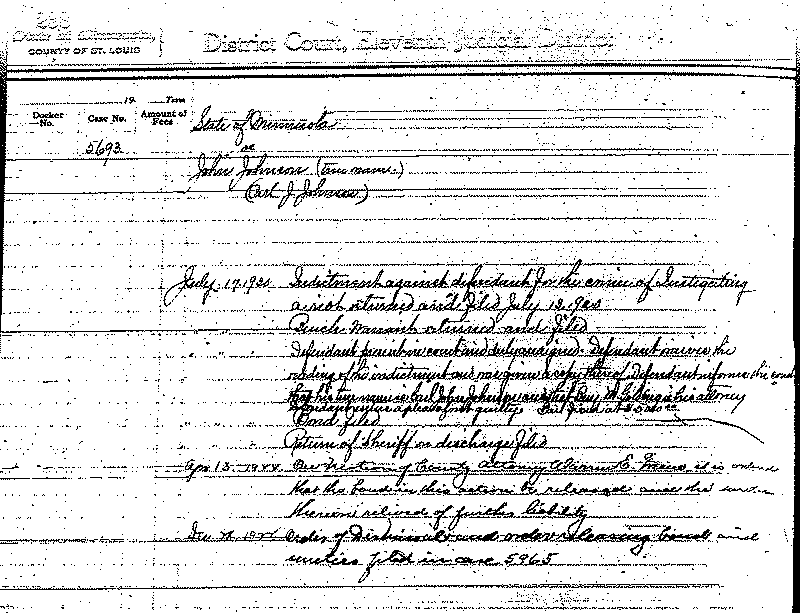 238
State of Minnesota,
COUNTY OF ST. LOUIS
District Court, Eleventh Judicial District
19 Term
Docket No. Case No. Amount of Fees
State of Minnesota
5693 vs
John Johnson (true name.)
(Carl J. Johnson)
July 17, 1920 Indictment against defendant for the crime of Instigating
a riot returned and filed July 12, 1920
Bench Warrant returned and filed
Defendant present in court and duly arraigned. Defendant waives the
reading of his indictment and was given a copy thereof. Defendant informs the court
that his true name is Carl John Johnson and that is his attorney
Defendant enters a plea of not guilty. Bail fixed at $
Bond filed
Return of Sheriff on discharge filed
Apr 13, On motion of County Attorney Warren E. Greene it is ordered
that the bond in this action be released and the
therein relieved of further liability
Order of Dismissal and order releasing bonds and
sureties filed in case 5965